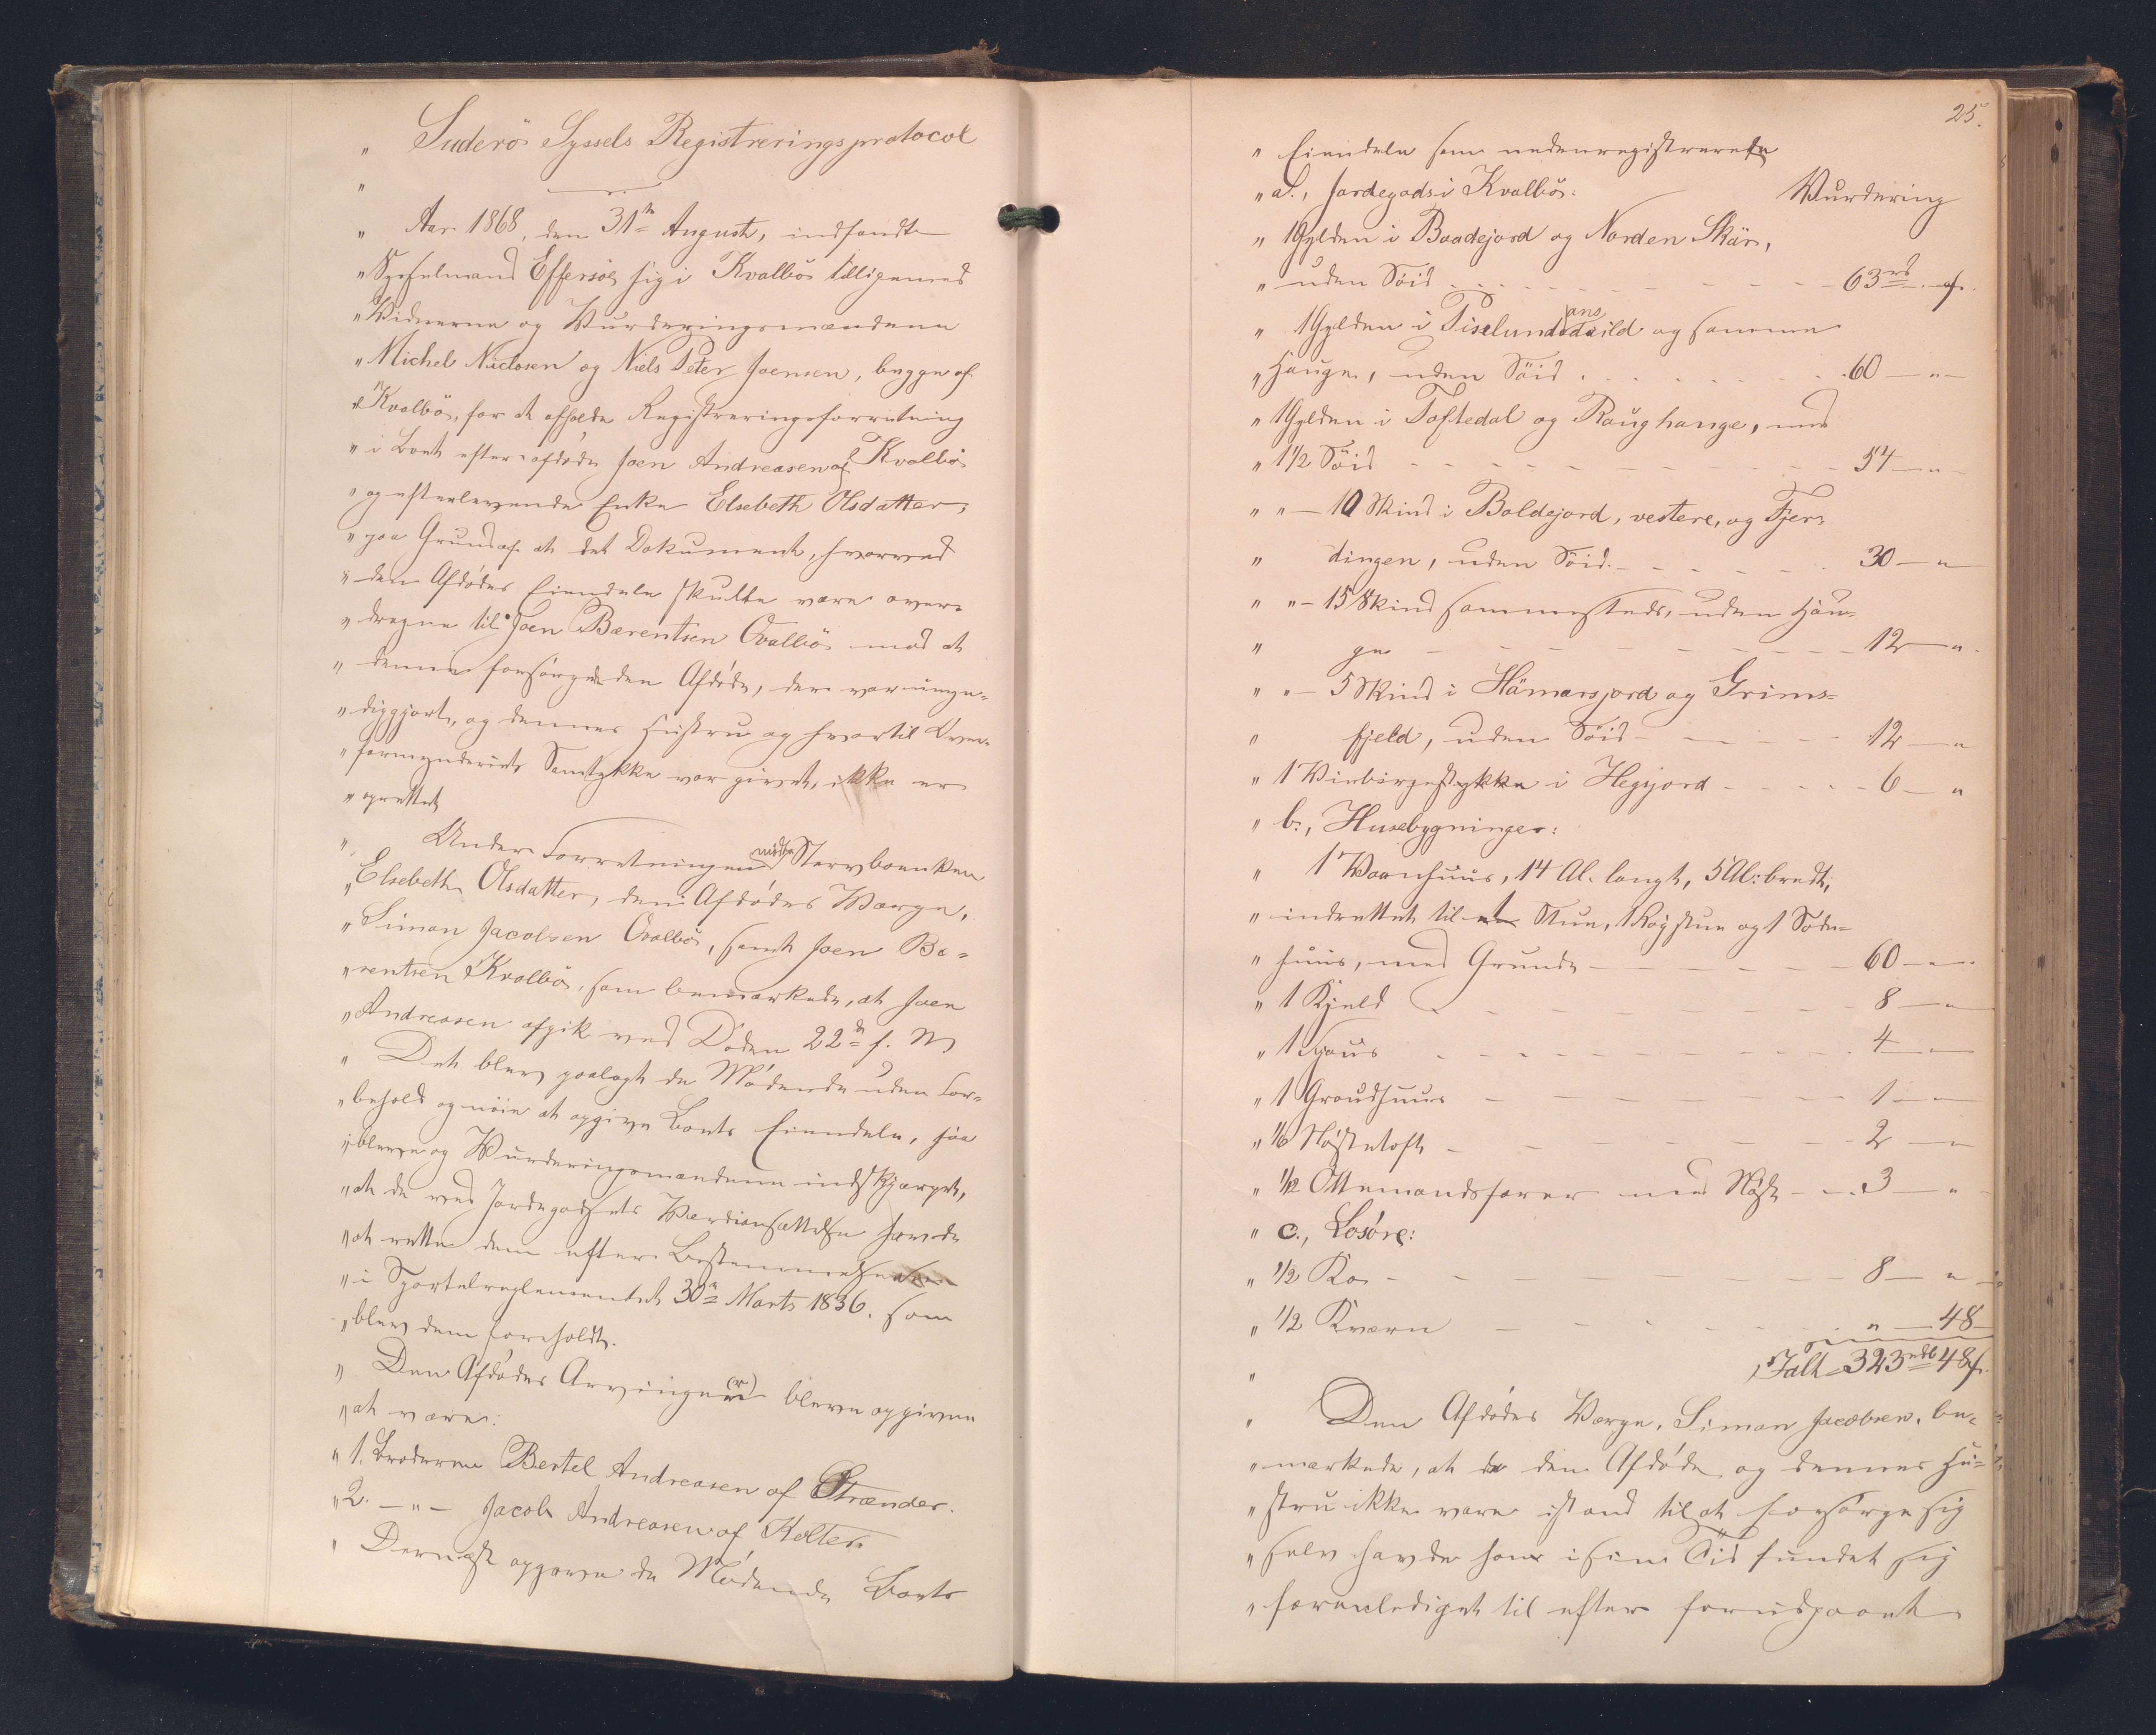 " Suderö Syssels Registreringsprotocol
"
" Aar 1868, den 31te August, indfandt
" Sysselmand Effersöe sig i Kvalbö tilligemed
" Vidnerne og Vurderingsmændene
" Michel Niclosen og Niels Peter Joensen, begge af
" Kvalbö, for at afholde Registreringsforretning
" i Boet efter afdöde Joen Andreasen af Kvalbö
" og efterlevende Enke Elsebeth Olsdatter,
" paa Grund af at det Dokument, hvorved
" den Afdödes Eiendele skulde være over-
" dragne til Joen Bærentsen Qvalbö mod at
" denne forsörgede den Afdöde, der var umyn-
" diggjort, og dennes Hustru og hvortil Over-
" formynderiets Samtykke var givet, ikke er
" oprettet
" Under Forretningen mödte Stervboenken
" Elsebeth Olsdatter, den Afdödes Værge,
" Simon Jacobsen Qvalbö, samt Joen Bæ-
" rentsen Kvalbö, som bemærkede, at Joen
" Andreasen afgik ved Döden 22de f. M
" Det blev paalagt de Mödende uden For-
" behold og nöie at opgive Boets Eiendele, saa
" bleve og Vurderingsmændene indskjærpet,
" at de ved Jordegodsets Værdiansættelse havde
" at rette dem efter Bestemmelserne
" i Sportelreglementet 30te Marts 1836. som
" blev dem foreholdt.
" Den Afdödes Arvinger (r) bleve opgivne
" at være:
" 1. Broderen Bertel Andreasen af Strænder.
" 2. — " — Jacob Andreasen af Kolter.
" Dernæst opgave de Mödende Boets
25.
" Eiendele som nedenregistrerede
" a., Jordegods i Kvalbö: Vurdering
" 1 Gylden i Boadejord og Norden Skär,
" uden Söid - - - 63 rd. " s.
" 1 Gylden i Tiselund ans og samme
" Hauge, uden Söid - - - 60 — " —
" 1 Gylden i Toftedal og Raughauge, med
" 1 1/2 Söid - - - 54 — " —
" " — 10 Skind i Boldejord, vestere, og Fjer-
" dingen, uden Söid. - - - 30 — "
" " — 15 Skind sammesteds, uden Hau-
" ge - - - 12 — "
" " — 5 Skind i Hämarsjord og Grims-
" fjeld, uden Söid - - - 12 — "
" 1 Virbirgestykke i Hegjord - - - 6 — "
" b., Husebygninger:
" 1 Vaanhuus, 14 Al. langt, 5 Al: bredt,
" indrettet til 1 Stue, 1 Rögstue og 1 Sode-
" huus, med Grunde - - - 60 — "
" 1 Kjeld - - - 8 — "
" 1 Hjaus - - - 4 — "
" 1 Groudhuus - - - 1 — "
" 1/6 Nöstetoft - - - 2 — "
" 1/12 Ottemandsfarer med Nöst - - - 3 — "
" c., Losöre:
" 1/2 Ko - - - 8 — " —
" 1/2 Kværn - - - " — 48 —
" Ialt 323 rdl 48 s.
" Den Afdödes Værge, Simon Jacobsen, be-
" mærkede, at da den Afdöde og dennes Hu-
" stru ikke vare istand til at forsörge sig
" selv havde han i sin Tid fundet sig
" foranlediget til efter forudgaaet